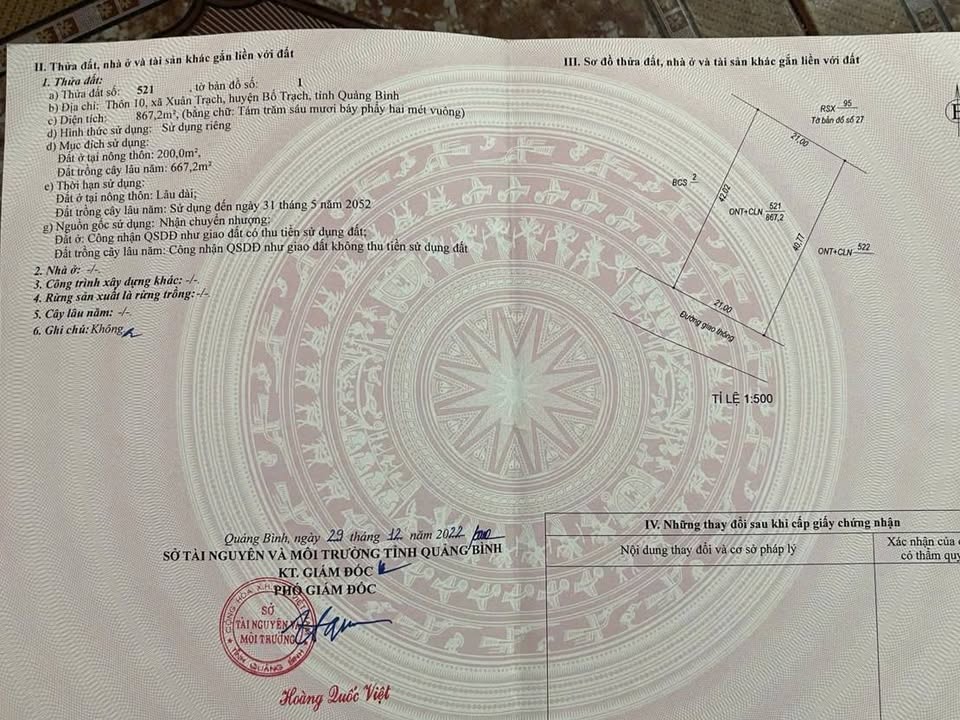 II. Thửa đất, nhà ở và tài sản khác gắn liền với đất
1. Thửa đất:
a) Thửa đất số: 521 , tờ bản đồ số: 1
b) Địa chỉ: Thôn 10, xã Xuân Trạch, huyện Bố Trạch, tỉnh Quảng Bình
c) Diện tích: 867,2m², (bằng chữ: Tám trăm sáu mươi bảy phẩy hai mét vuông)
d) Hình thức sử dụng: Sử dụng riêng
đ) Mục đích sử dụng:
Đất ở tại nông thôn: 200,0m²,
Đất trồng cây lâu năm: 667,2m²
e) Thời hạn sử dụng:
Đất ở tại nông thôn: Lâu dài;
Đất trồng cây lâu năm: Sử dụng đến ngày 31 tháng 5 năm 2052
g) Nguồn gốc sử dụng: Nhận chuyển nhượng:
Đất ở: Công nhận QSDĐ như giao đất có thu tiền sử dụng đất;
Đất trồng cây lâu năm: Công nhận QSDĐ như giao đất không thu tiền sử dụng đất
2. Nhà ở: -/-
3. Công trình xây dựng khác: -/-
4. Rừng sản xuất là rừng trồng: -/-
5. Cây lâu năm: -/-
6. Ghi chú: Không
Quảng Bình, ngày 29 tháng 12 năm 2022
SỞ TÀI NGUYÊN VÀ MÔI TRƯỜNG TỈNH QUẢNG BÌNH
KT. GIÁM ĐỐC
PHÓ GIÁM ĐỐC
SỞ
TÀI NGUYÊN VÀ
MÔI TRƯỜNG
TỈNH QUẢNG BÌNH
Hoàng Quốc Việt
III. Sơ đồ thửa đất, nhà ở và tài sản khác gắn liền với đất
RSX 95
Tờ bản đồ số 27
21,00
BCS 2
42,02
ONT+CLN 521
867,2
40,77
ONT+CLN 522
21,00
Đường giao thông
TỈ LỆ 1:500
IV. Những thay đổi sau khi cấp giấy chứng nhận
Nội dung thay đổi và cơ sở pháp lý
Xác nhận của
có thẩm